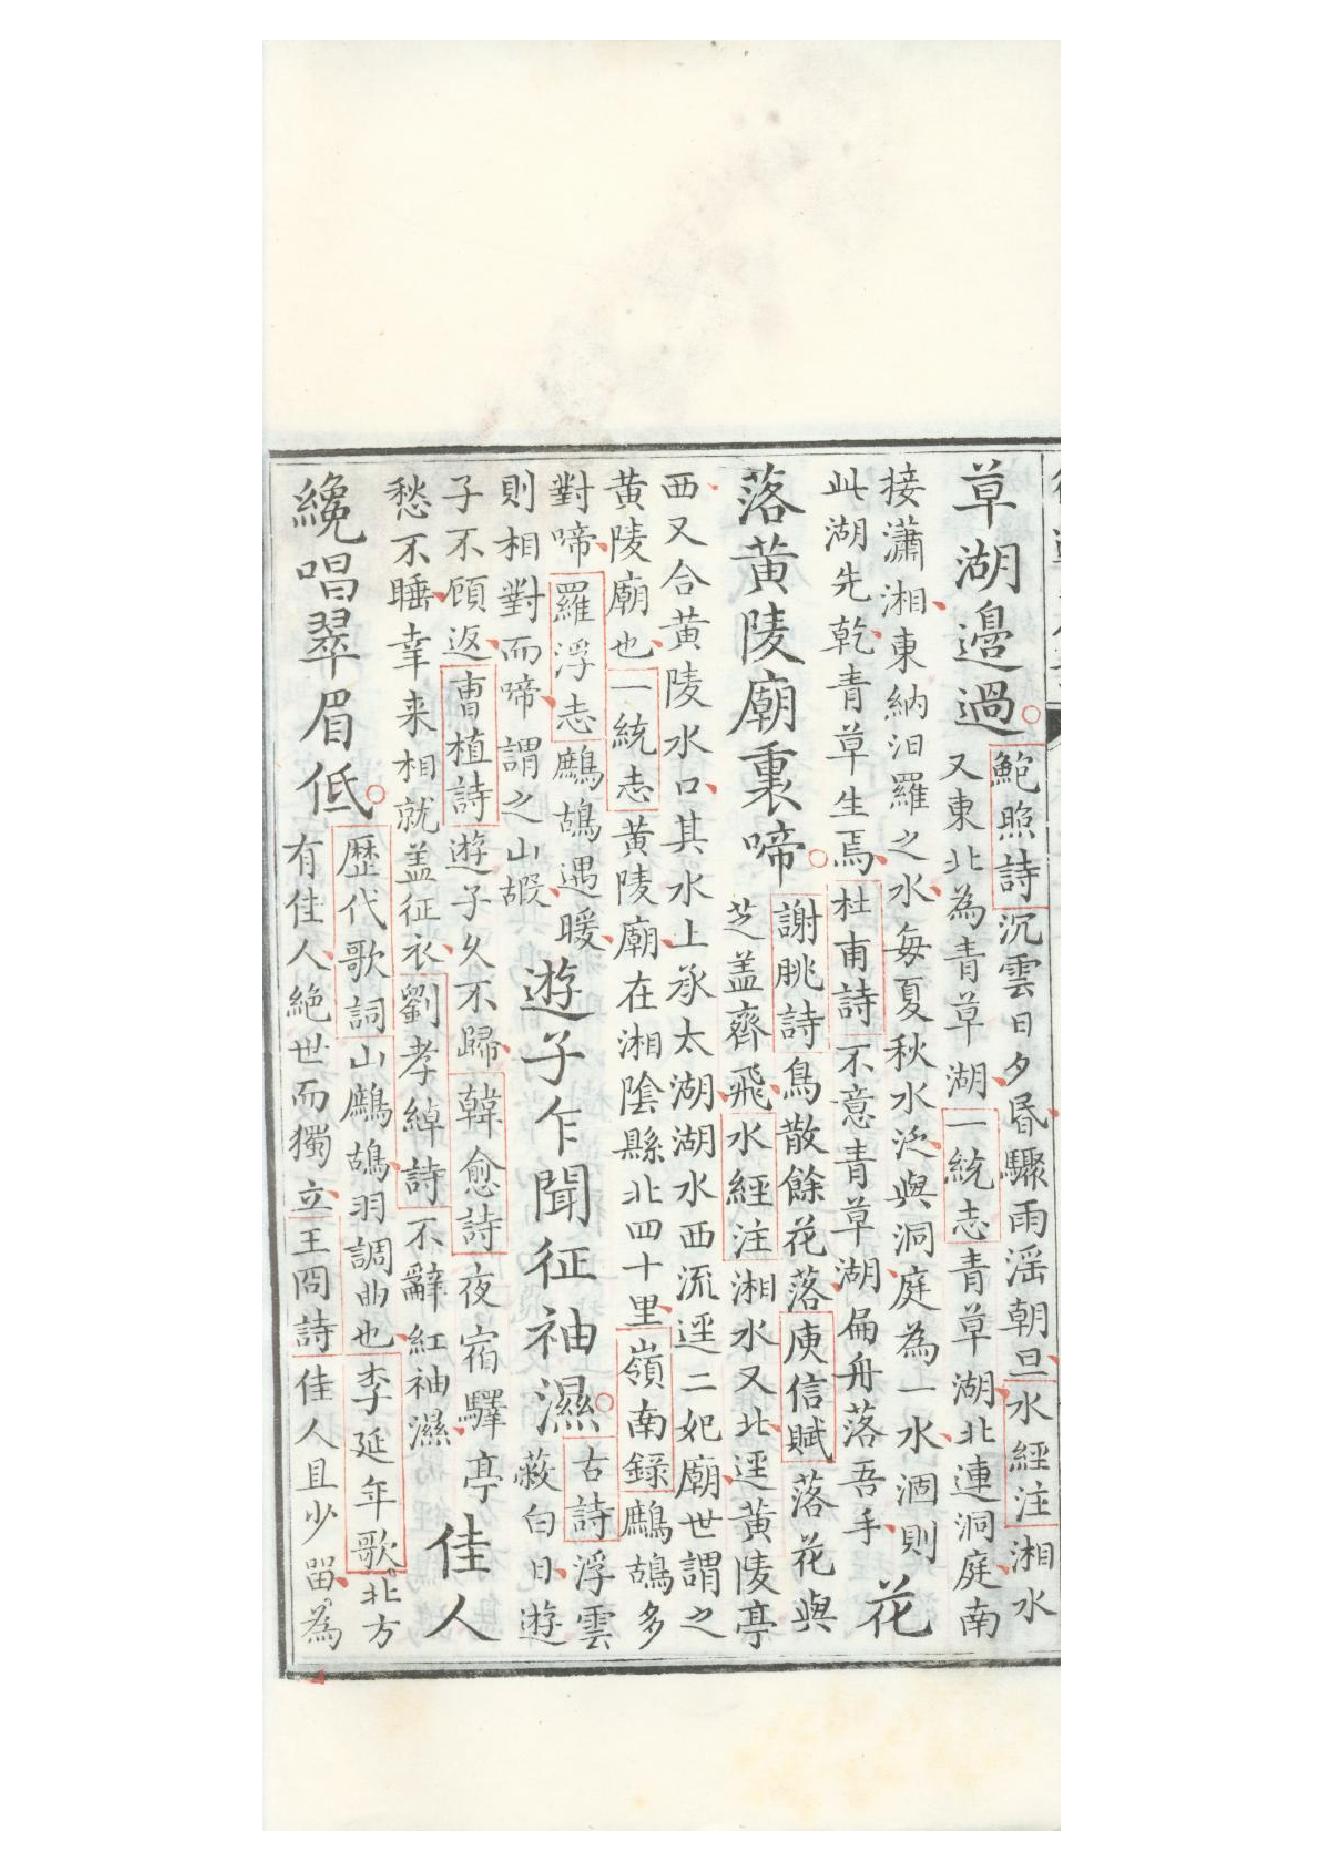 草湖邉過
鮑照詩沉雲日夕昏驟雨滛朝旦水經注湘水
又東北為青草湖一統志青草湖北連洞庭南
接瀟湘東納汨羅之水每夏秋水泛與洞庭為一水涸則
此湖先乾青草生焉杜甫詩不意青草湖扁舟落吾手
花
落黄陵廟裏啼
謝朓詩鳥散餘花落庾信賦落花與
芝盖齊飛水經注湘水又北逕黄陵亭
西又合黄陵水口其水上承太湖湖水西流逕二妃廟世謂之
黄陵廟也一統志黄陵廟在湘隂縣北四十里嶺南録鷓鴣多
對啼羅浮志鷓鴣遇暖
則相對而啼謂之山嘏
遊子乍聞征袖濕
古詩浮雲
蔽白日遊
子不顧返曹植詩遊子久不歸韓愈詩夜宿驛亭
愁不睡幸来相就盖征衣劉孝綽詩不辭紅袖濕
佳人
纔唱翠眉低
歴代歌詞山鷓鴣羽調曲也李延年歌北方
有佳人絶世而獨立王冏詩佳人且少留為